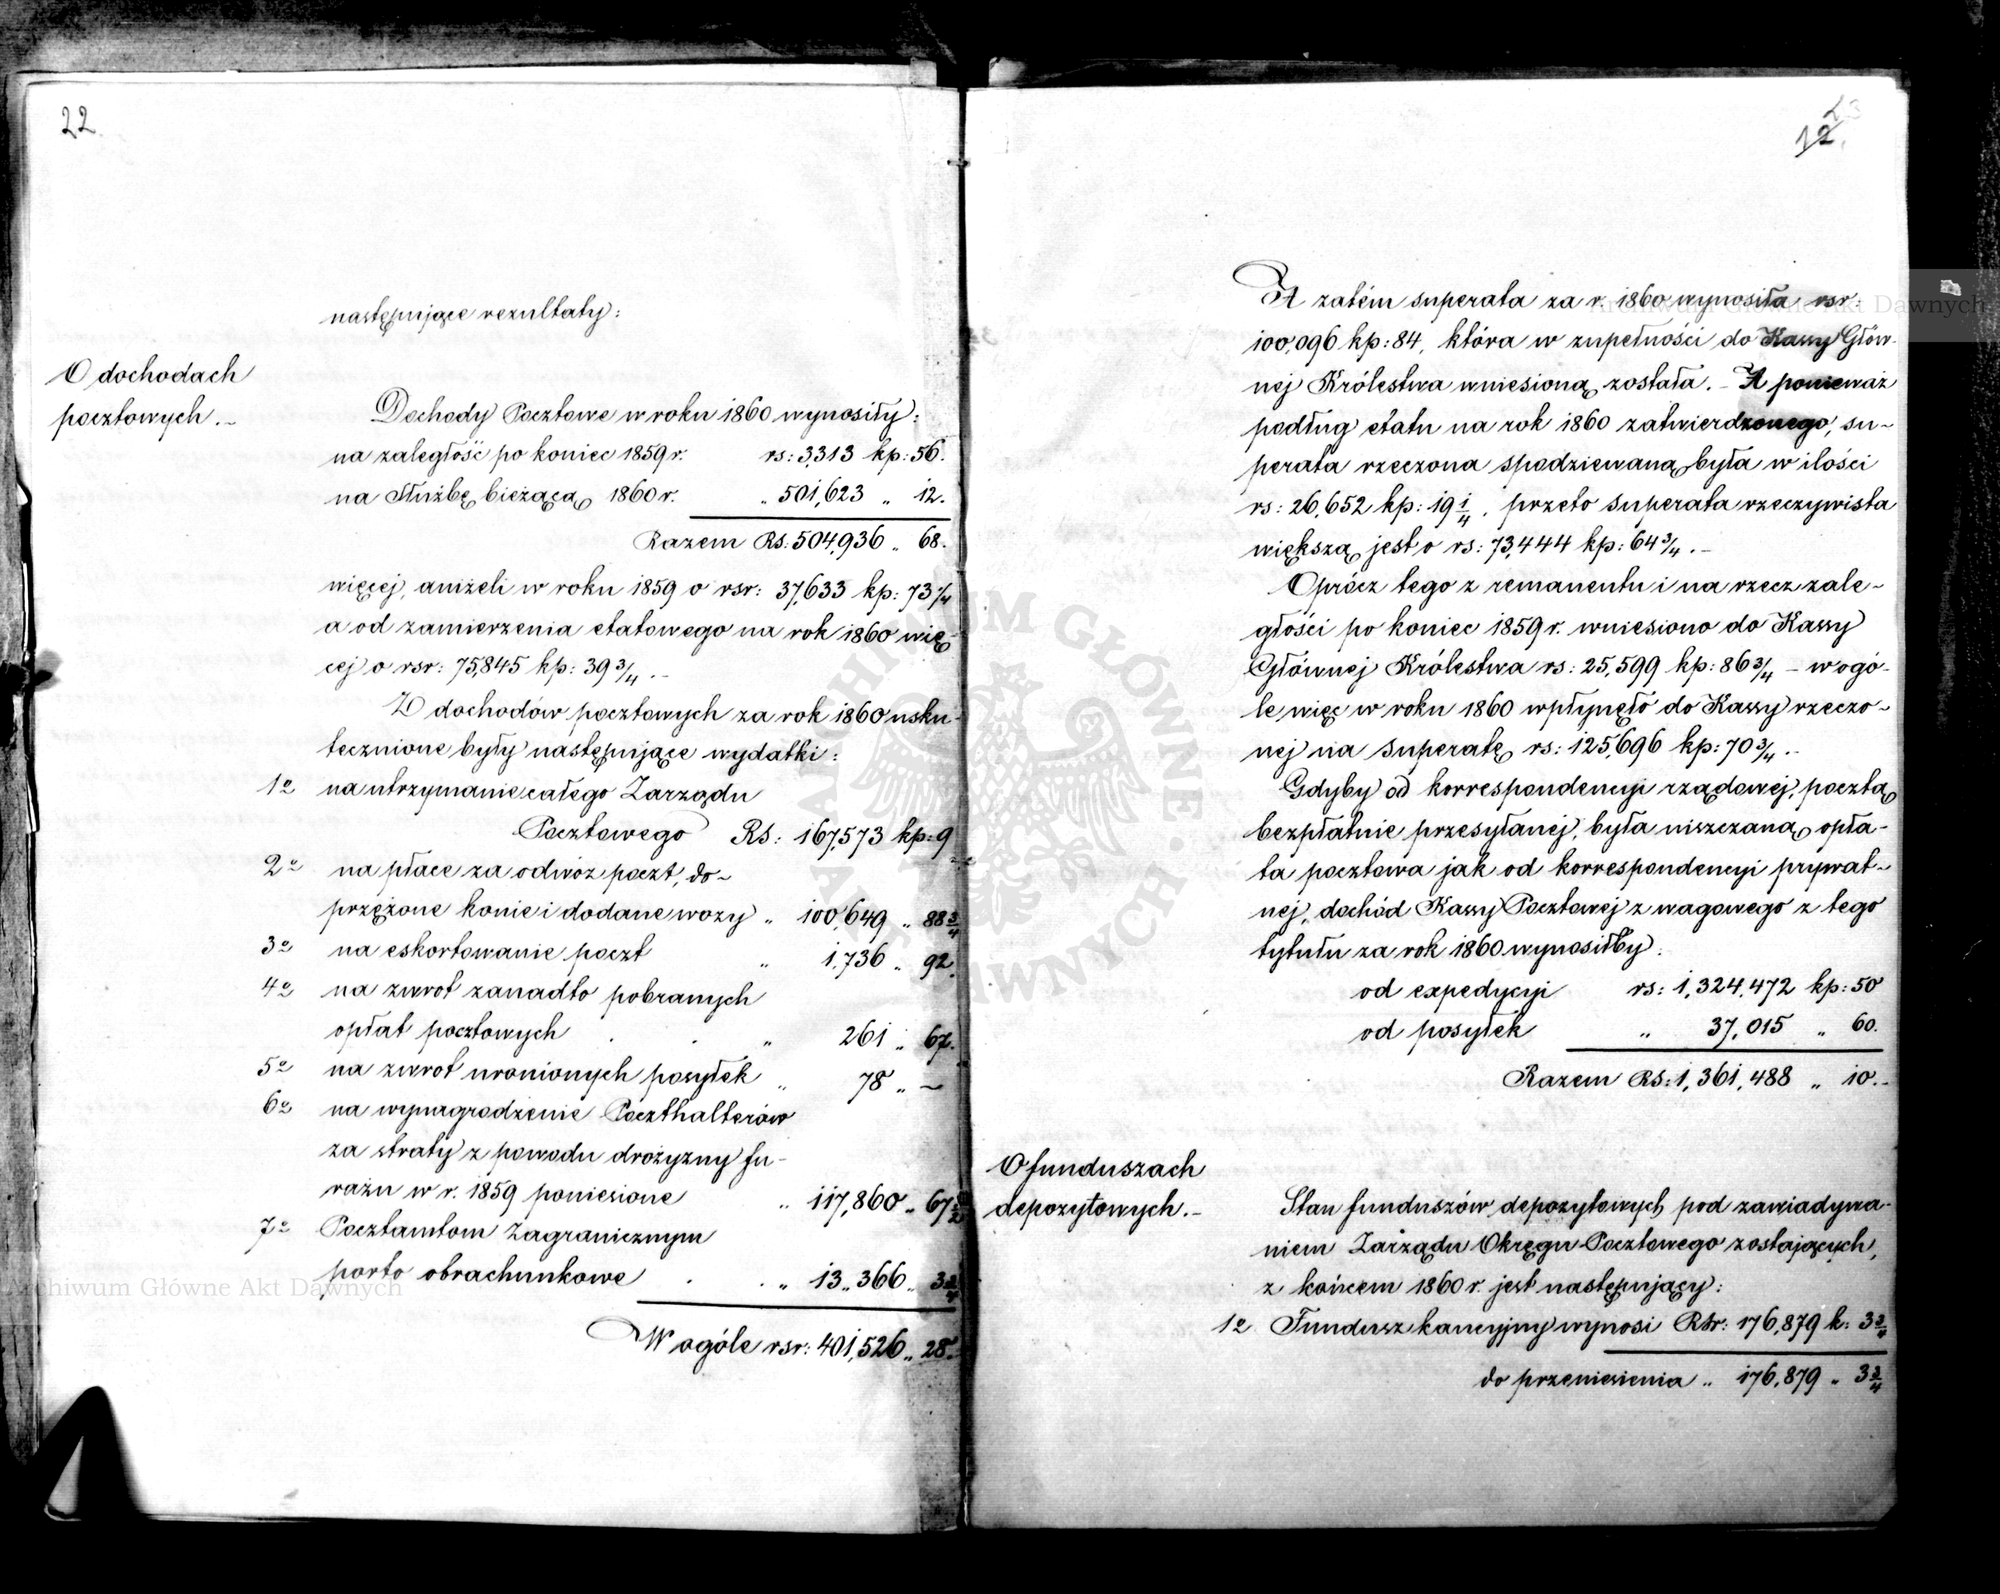 22.
następujące rezultaty:
O dochodach
pocztowych.–
Dochody Pocztowe w roku 1860 wynosiły:
na zaległość po koniec 1859 r. rs: 3,313 kp: 56.
na Służbę bieżącą 1860 r. „ 501,623 „ 12.
Razem Rs: 504,936 „ 68.
więcej, aniżeli w roku 1859 o rsr: 37,633 kp: 73 1/4
a od zamierzenia etatowego na rok 1860 wię-
cej o rsr: 75,845 kp: 39 3/4.–
Z dochodów pocztowych za rok 1860 usku-
tecznione były następujące wydatki:
1o na utrzymanie całego Zarządu
Pocztowego Rs: 167,573 kp: 9
2o na płace za odwóz poczt, do-
przężone konie i dodane wozy „ 100,649 „ 88 3/4
3o na eskortowanie poczt „ 1,736 „ 92.
4o na zwrot zanadto pobranych
opłat pocztowych . . „ 261 „ 67.
5o na zwrot uronionych posyłek „ 78 „ –
6o na wynagrodzenie Poczthalterów
za straty z powodu drożyzny fu-
rażu w r. 1859 poniesione „ 117,860 „ 67 1/2
7o Pocztamtom Zagranicznym
porto obrachunkowe . . „ 13,366 „ 3 3/4
W ogóle rsr: 401,526 „ 28.
12.
A zatém superata za r. 1860 wynosiła rsr:
100,096 kp: 84, która w zupełności do Kassy Głów-
nej Królestwa wniesioną została. – A ponieważ
podług etatu na rok 1860 zatwierdzonego, su-
perata rzeczona spodziewaną była w ilości
rs: 26,652 kp: 19 1/4, przeto superata rzeczywista
większą jest o rs: 73,444 kp: 64 3/4.–
Oprócz tego z remanentu i na rzecz zale-
głości po koniec 1859 r. wniesiono do Kassy
Głównej Królestwa rs: 25,599 kp: 86 3/4 – w ogó-
le więc w roku 1860 wpłynęło do Kassy rzeczo-
nej na superatę rs: 125,696 kp: 70 3/4.–
Gdyby od korrespondencyi rządowej, pocztą
bezpłatnie przesyłanéj, była uiszczaną opła-
ta pocztowa jak od korrespondencyi prywat-
nej, dochód Kassy Pocztowej z wagowego z tego
tytułu za rok 1860 wynosiłby:
od expedycyi rs: 1,324,472 kp: 50
od posyłek „ 37,015 „ 60.
Razem Rs: 1,361,488 „ 10.–
O funduszach
depozytowych.–
Stan funduszów depozytowych pod zawiadywa-
niem Zarządu Okręgu Pocztowego zostających,
z końcem 1860 r. jest następujący:
1o Fundusz kaucyjny wynosi Rsr: 176,879 k: 3 3/4
do przeniesienia „ 176,879 „ 3 3/4
Archiwum Główne Akt Dawnych
Archiwum Główne Akt Dawnych
ARCHIWUM GŁÓWNE AKT DAWNYCH